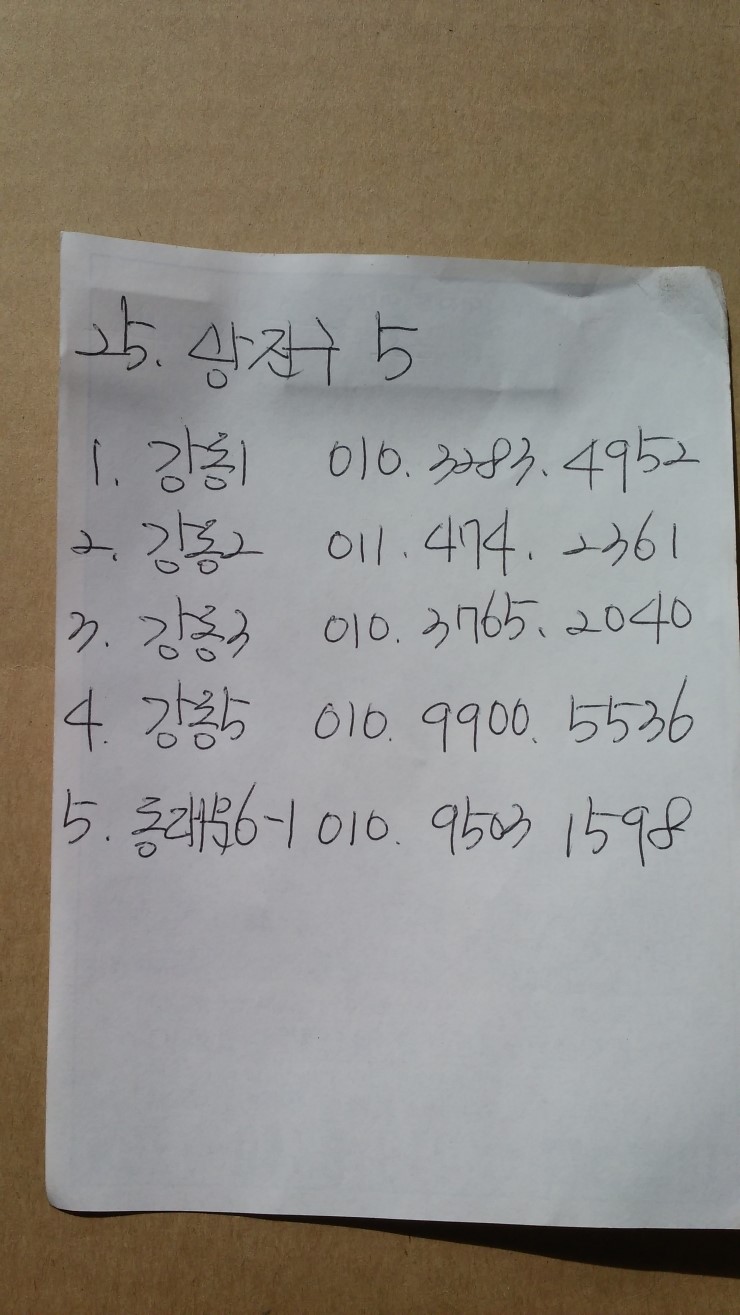 25. 상진구 5
1. 강동1 010. 3283. 4952
2. 강동2 011. 474. 2361
3. 강동3 010. 3765. 2040
4. 강동5 010. 9900. 5536
5. 동대문6-1 010. 9503 1598